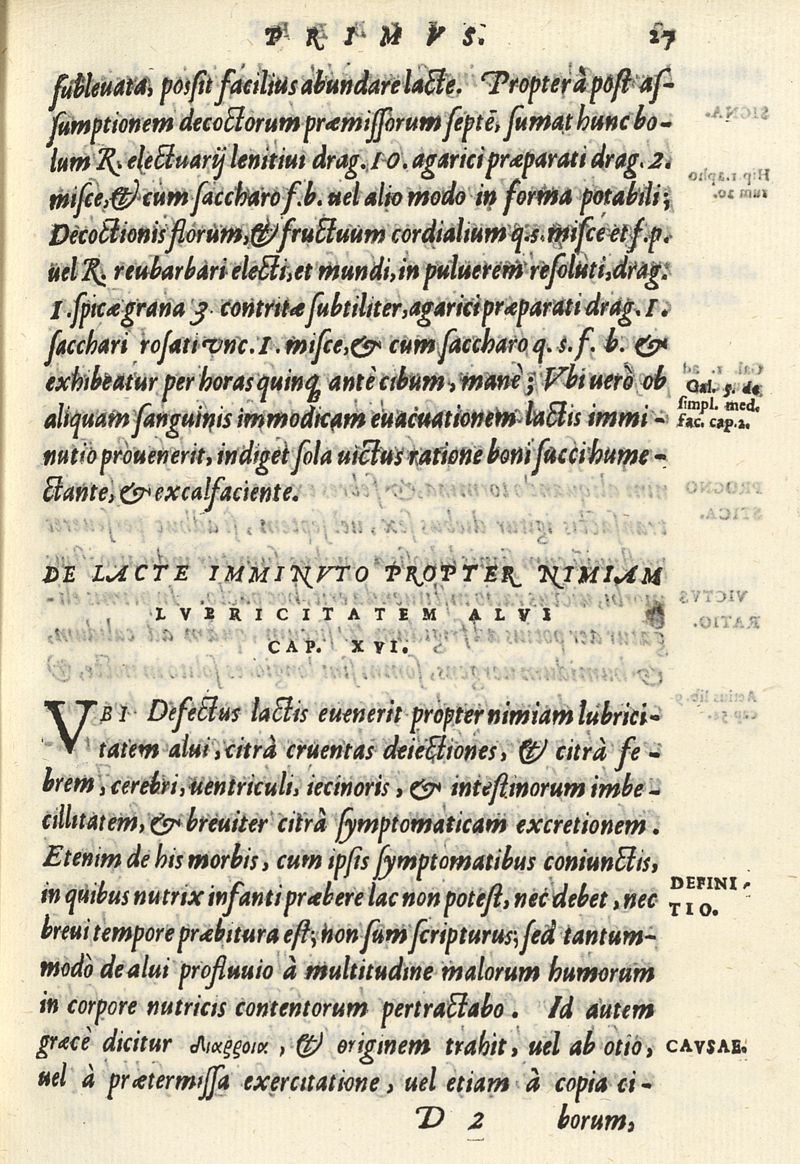 PRIMVS. 27
subleuata, possit facilius abundare lacte. Propter à post as-
sumptionem decoctorum præmissorum septē, sumat hunc bo-
lum R. electuarij lenitiui drag. 10. agarici præparati drag. 2.
misce, & cum saccharo f. b. uel alio modo in forma potabili;
Decoctionis florum, & fructuum cordialium q. s. misce et f. p.
uel R. reubarbari electi, et mundi, in puluerem resoluti, drag.
1. spicæ grana 3. contritæ subtiliter, agarici præparati drag. 1.
sacchari rosati vnc. 1. misce, & cum saccharo q. s. f. b. &
exhibeatur per horas quinq; antè cibum, manè; Vbi uerò ob
Gal. 5. de
simpl. med.
fac. cap. 2.
aliquam sanguinis immodicam euacuationem lactis immi-
nutio prouenerit, indiget sola uictus ratione boni succi hume-
ctante, & excalfaciente.
DE LACTE IMMINVTO PROPTER NIMIAM
LVBRICITATEM ALVI
CAP. XVI.
VBI Defectus lactis euenerit propter nimiam lubrici-
tatem alui, citrà cruentas deiectiones, & citrà fe-
brem, cerebri, uentriculi, iecinoris, & intestinorum imbe-
cillitatem, & breuiter citrà symptomaticam excretionem.
Etenim de his morbis, cum ipsis symptomatibus coniunctis,
in quibus nutrix infanti præbere lac non potest, nec debet, nec
DEFINI-
TIO.
breui tempore præbitura est; non sum scripturus; sed tantum-
modò de alui profluuio à multitudine malorum humorum
in corpore nutricis contentorum pertractabo. Id autem
græcè dicitur διαῤῥοια, & originem trahit, uel ab otio,
CAVSAE.
uel à prætermissa exercitatione, uel etiam à copia ci-
D 2 borum,